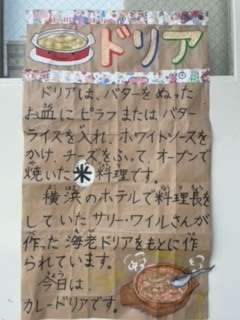 ドリア
ドリアは、バターをぬった
お皿にピラフまたはバター
ライスを入れ、ホワイトソースを
かけ、チーズをふって、オーブンで
焼いた米料理です。
横浜のホテルで料理長を
していたサリー・ワイルさんが
作った海老ドリアをもとに作
られています。
今日は
カレードリアです。